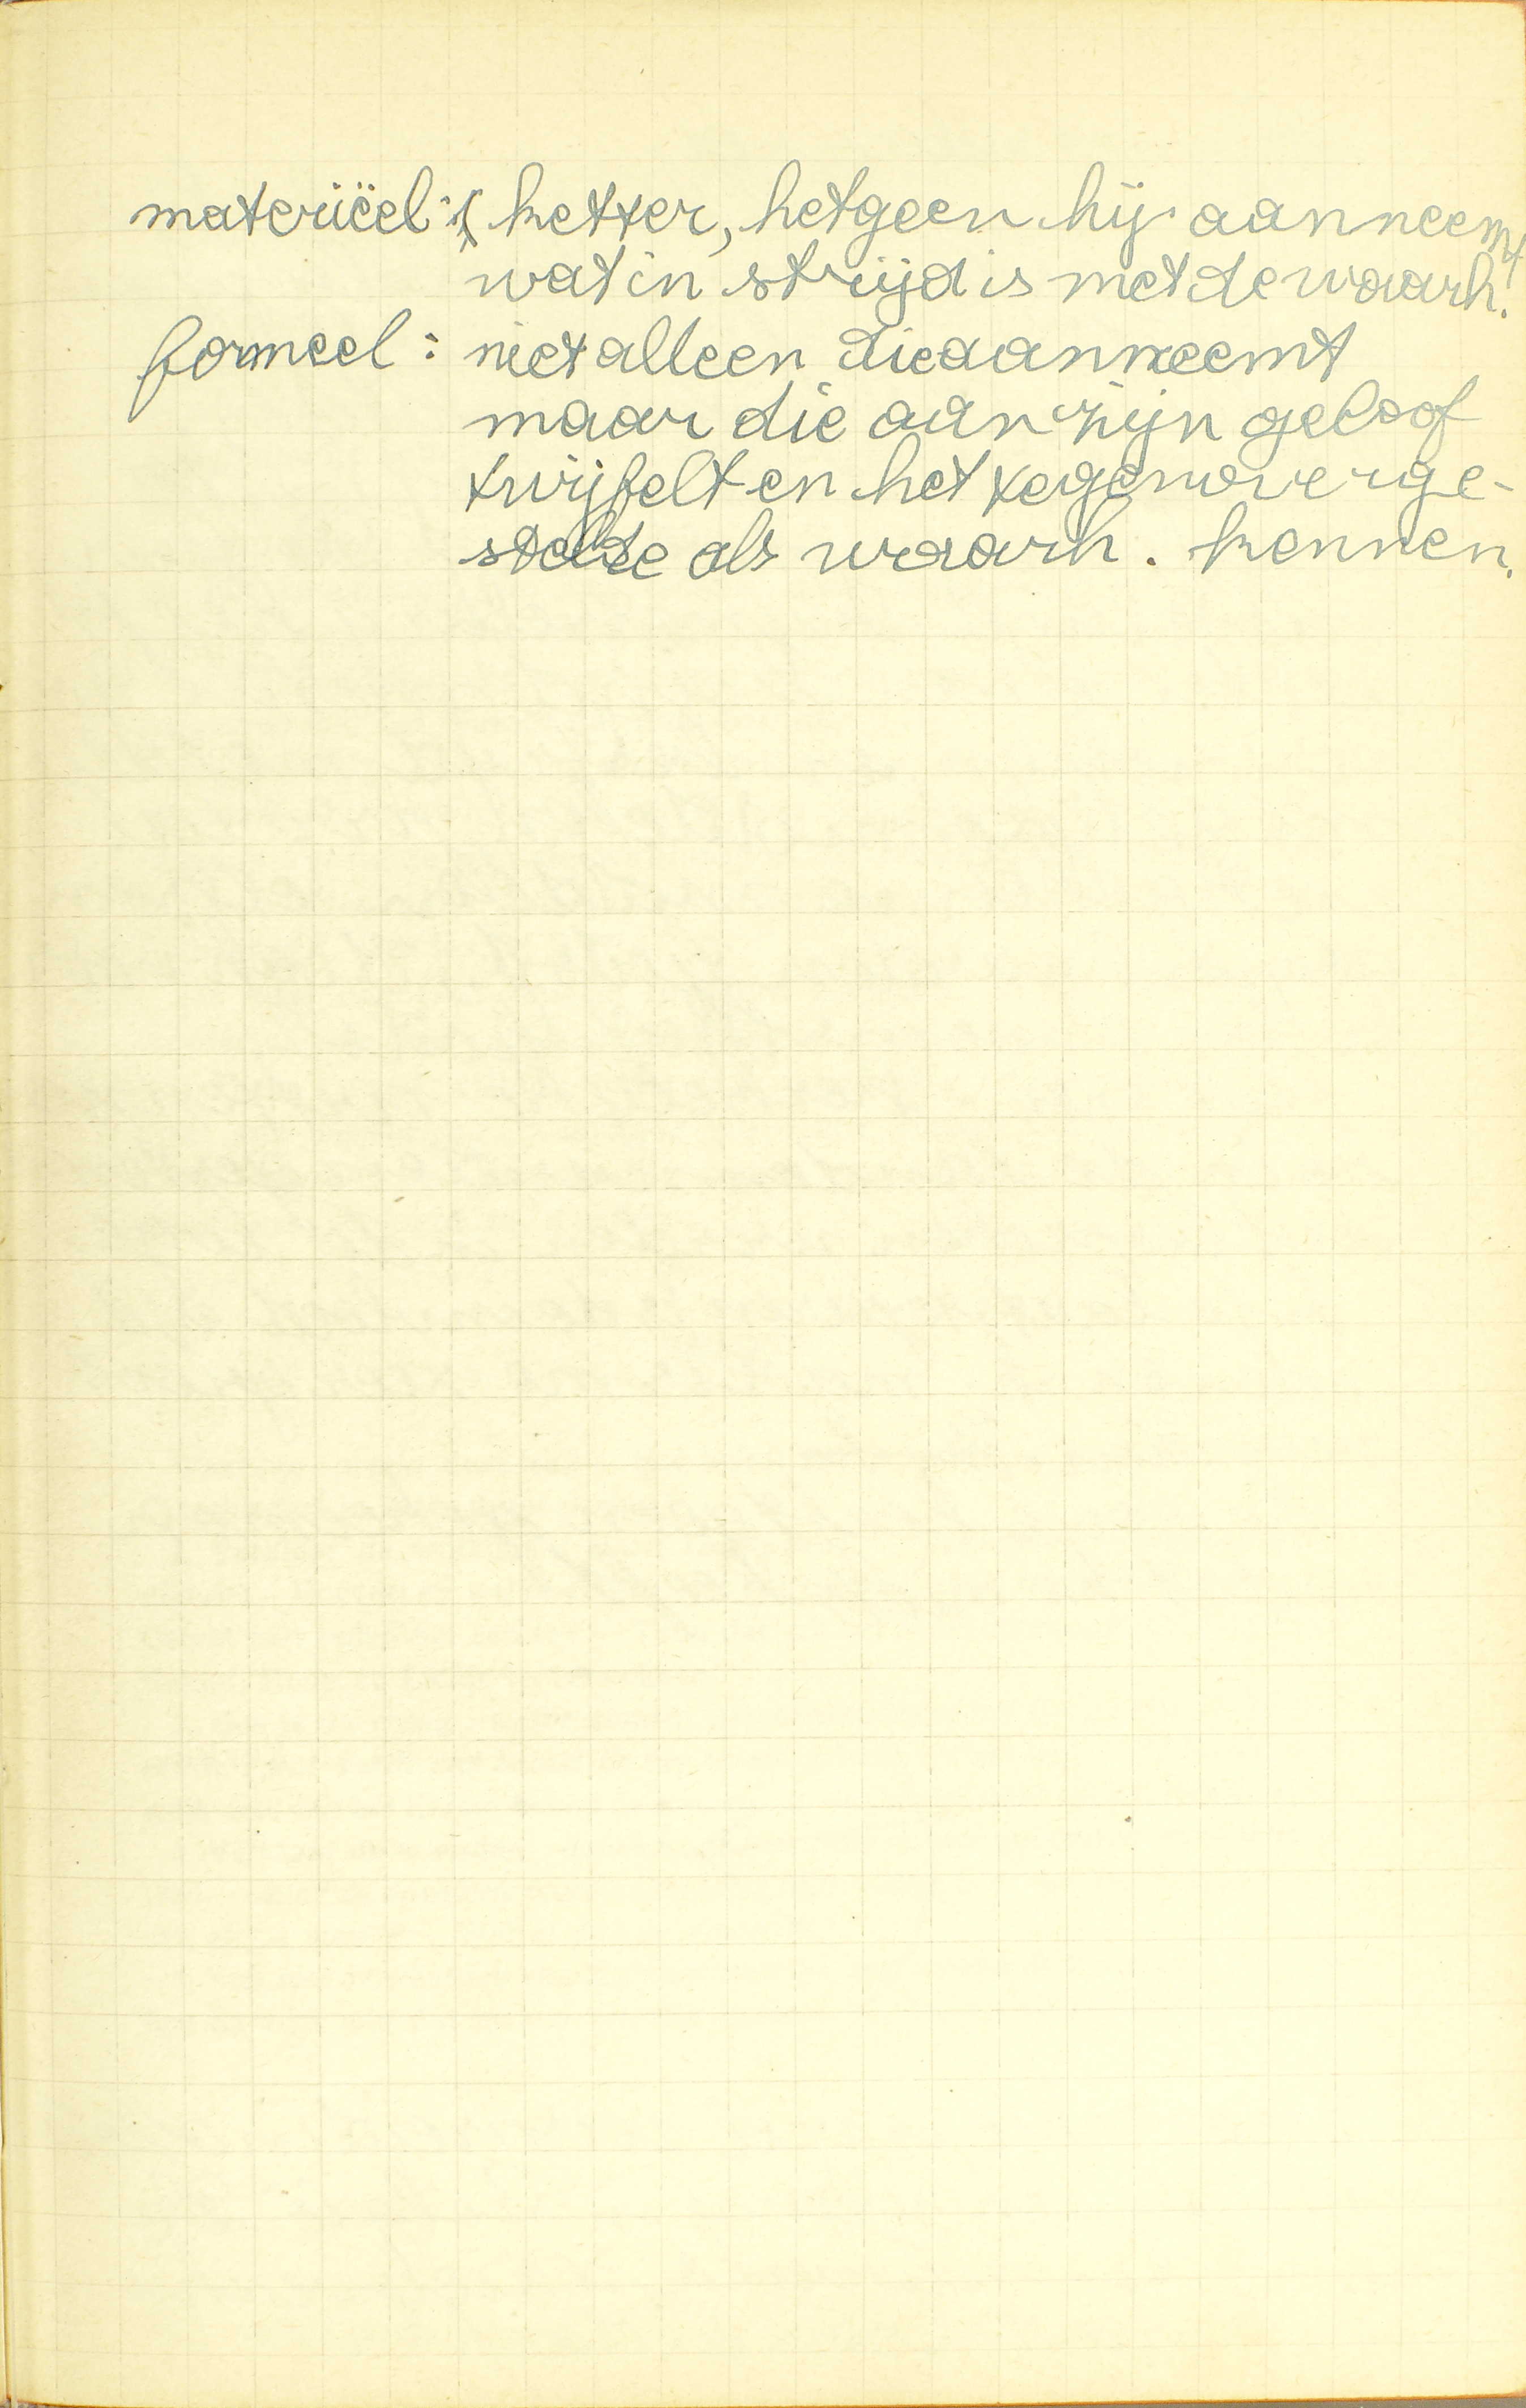 materiëel: ketter, hetgeen hij aanneemt
wat in strijd is met de waarh.
formeel: niet alleen die aanneemt
maar die aan zijn geloof
twijfelt en het tegenoverge-
stelde als waarh. kennen.